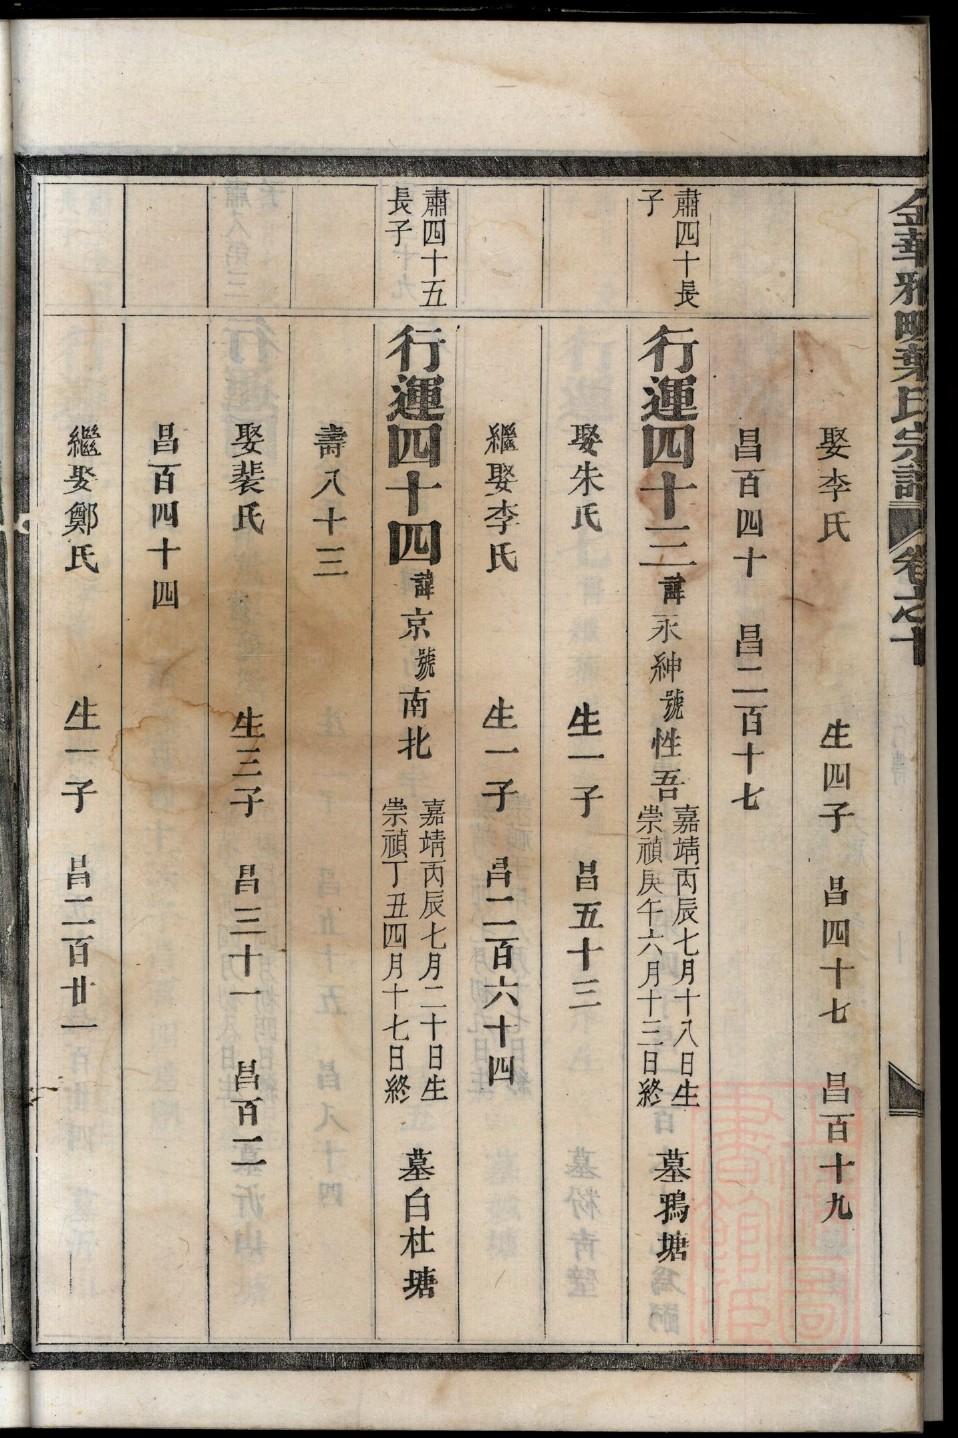 金華雅畈葉氏宗譜 卷之十
娶李氏 生四子 昌四十七 昌百十九
昌百四十 昌二百十七
肅四十長子
行運四十三 諱永紳 號性吾 嘉靖丙辰七月十八日生 崇禎庚午六月十三日終 墓鴉塘
娶朱氏 生一子 昌五十三
繼娶李氏 生一子 昌二百六十四
肅四十五長子
行運四十四 諱京 號南北 嘉靖丙辰七月二十日生 崇禎丁丑四月十七日終 墓白杜塘
壽八十三
娶裴氏 生三子 昌三十一 昌百二
昌百四十四
繼娶鄭氏 生一子 昌二百廿一